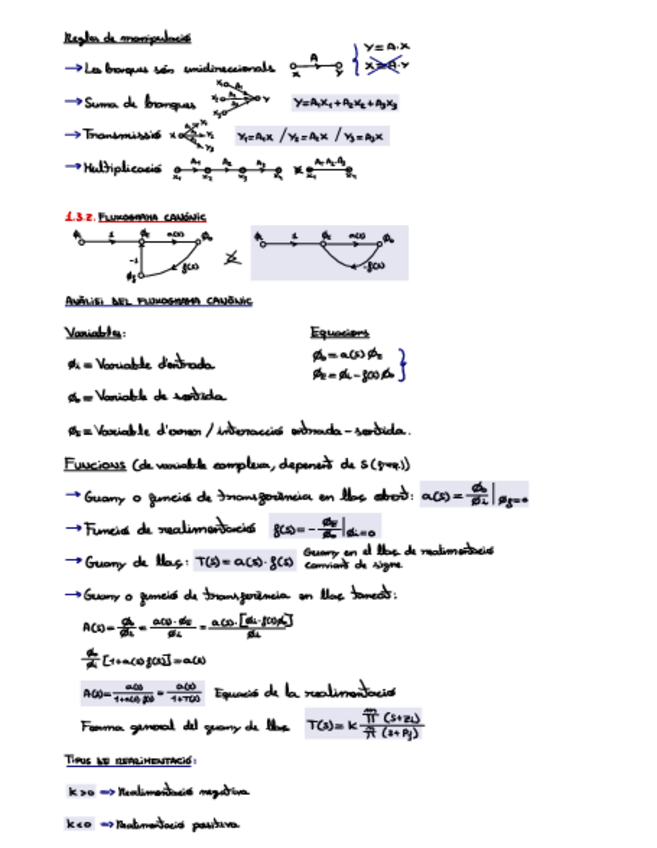 Regles de manipulació
→ Les branques són unidireccionals A x y Y=A·X
X=A·Y
→ Suma de branques x₁ A₁ x₂ A₂ x₃ A₃ Y Y=A₁X₁+A₂X₂+A₃X₃
→ Transmissió X Y₁ Y₂ Y₃ Y₁=A₁X / Y₂=A₂X / Y₃=A₃X
→ Multiplicació A₁ A₂ A₃ x₁ x₂ x₃ x₄ A₁·A₂·A₃ x₁ x₄
1.3.2. FLUXOGRAMA CANÒNIC
Øi 1 Øε a(s) Øo -1 f(s) Øf Øi 1 Øε a(s) Øo -f(s)
ANÀLISI DEL FLUXOGRAMA CANÒNIC
Variables: Equacions
Øi = Variable d'entrada Øo = a(s) Øε
Øε = Øi - f(s) Øo
Øo = Variable de sortida
Øε = Variable d'error / interacció entrada-sortida.
FUNCIONS (de variable complexa, depenent de s (freq.))
→ Guany o funció de transferència en llaç obert: a(s) = Øo/Øi |Øf=0
→ Funció de realimentació f(s) = - Øε/Øo |Øi=0
→ Guany de llaç: T(s) = a(s)·f(s) Guany en el llaç de realimentació
canviant de signe
→ Guany o funció de transferència en llaç tancat:
A(s) = Øo/Øi = a(s)·Øε/Øi = a(s)·[Øi-f(s)Øo]/Øi
Øo/Øi [1+a(s)f(s)] = a(s)
A(s) = a(s)/1+a(s)·f(s) = a(s)/1+T(s) Equació de la realimentació
Forma general del guany de llaç T(s) = k π(s+zi)/π(s+pj)
TIPUS DE REALIMENTACIÓ:
k>0 ⇒ Realimentació negativa
k<0 ⇒ Realimentació positiva